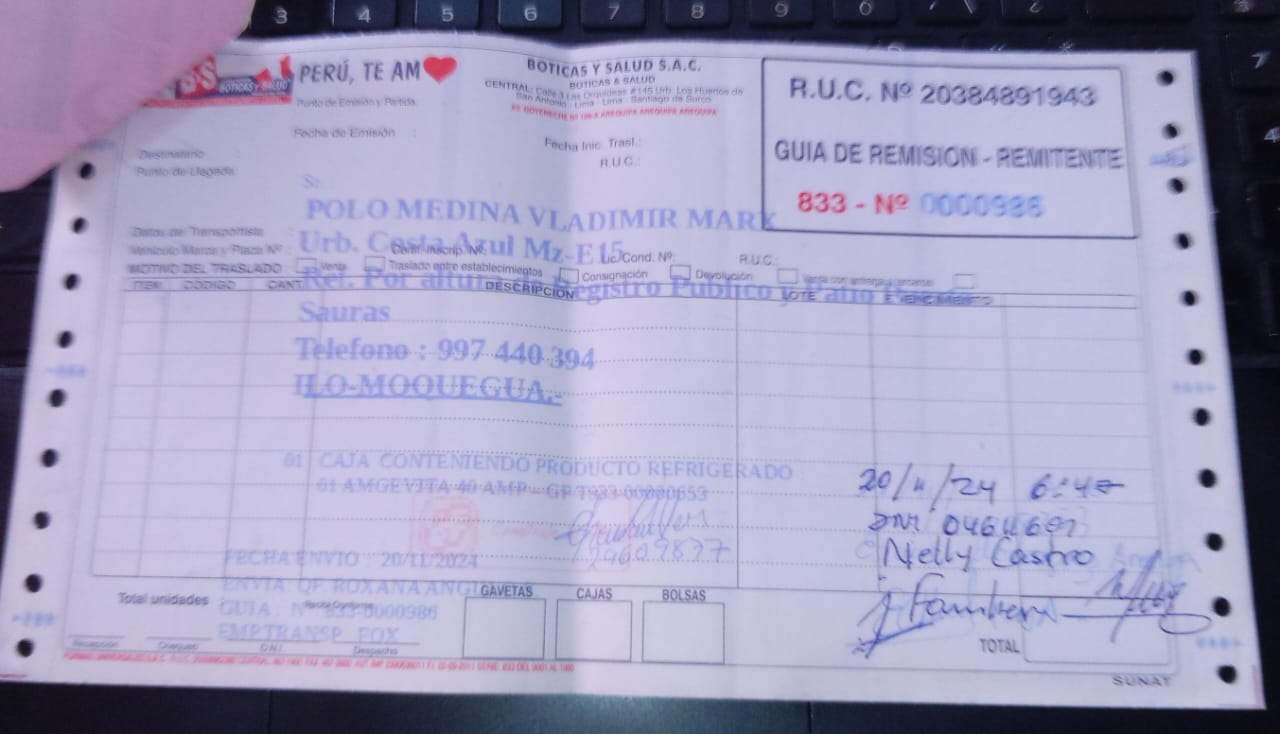 BOTICAS Y SALUD
PERÚ, TE AM
BOTICAS Y SALUD S.A.C.
BOTICAS & SALUD
CENTRAL: Calle 3 Las Orquideas #145 Urb. Los Huertos de
San Antonio - Lima - Lima - Santiago de Surco
AV. GOYENECHE Nº AREQUIPA AREQUIPA AREQUIPA
R.U.C. Nº 20384891943
GUIA DE REMISION - REMITENTE
833 - Nº 0000986
Punto de Emisión y Partida
Fecha de Emisión :
Fecha Inic. Trasl.:
R.U.C.:
Destinatario :
Punto de Llegada:
S:
POLO MEDINA VLADIMIR MARX
Datos de Transportista
Urb. Costa Azul Mz-E15
Vehículo Marca y Placa Nº :
Cert. Inscrip. Nº:
Lic. Cond. Nº:
R.U.C.:
MOTIVO DEL TRASLADO
Venta
Traslado entre establecimientos
Consignación
Devolución
Venta con entrega a terceros
Ref. Por altura de Registro Publico y Patio
ITEM CODIGO CANT. DESCRIPCION LOTE VENCIMIENTO
Sauras
Telefono : 997 440 394
ILO-MOQUEGUA.-
01 CAJA CONTENIENDO PRODUCTO REFRIGERADO
01 AMGEVITA 40 AMP - GP T933-00000653
20/11/24 6:47
Nelly Castro
FECHA ENVIO : 20/11/2024
ENVIA QF. ROXANA ANGI
GUIA : Nº 833-0000986
EMP.TRANSP. FOX
Total unidades :
Recibí Conforme
GAVETAS CAJAS BOLSAS
Recepción Chequeo D.N.I. Despacho
TOTAL
SUNAT